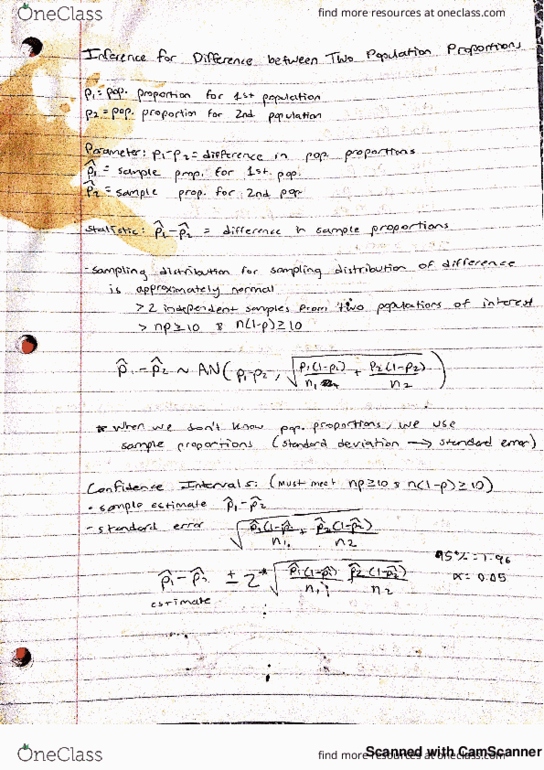 OneClass
find more resources at oneclass.com
Inference for Difference between Two Population Proportions
p₁ = pop. proportion for 1st population
p₂ = pop. proportion for 2nd population
Parameter: p₁-p₂ = difference in pop. proportions
p̂₁ = sample prop. for 1st. pop.
p̂₂ = sample prop. for 2nd pop
statistic: p̂₁-p̂₂ = difference in sample proportions
-sampling distribution for sampling distribution of difference
is approximately normal
> 2 independent samples from two populations of interest
> np≥10 & n(1-p)≥10
p̂₁-p̂₂ ~ AN(p₁-p₂, √(p₁(1-p₁)/n₁ + p₂(1-p₂)/n₂))
* When we don't know pop. proportions, we use
sample proportions (standard deviation → standard error)
Confidence Intervals: (Must meet np≥10 & n(1-p)≥10)
• sample estimate p̂₁-p̂₂
- standard error √(p̂₁(1-p̂₁)/n₁ + p̂₂(1-p̂₂)/n₂)
95% = 1.96
p̂₁-p̂₂ ± z* √(p̂₁(1-p̂₁)/n₁ p̂₂(1-p̂₂)/n₂)
α = 0.05
estimate
OneClass
find more resources at oneclass.com
Scanned with CamScanner